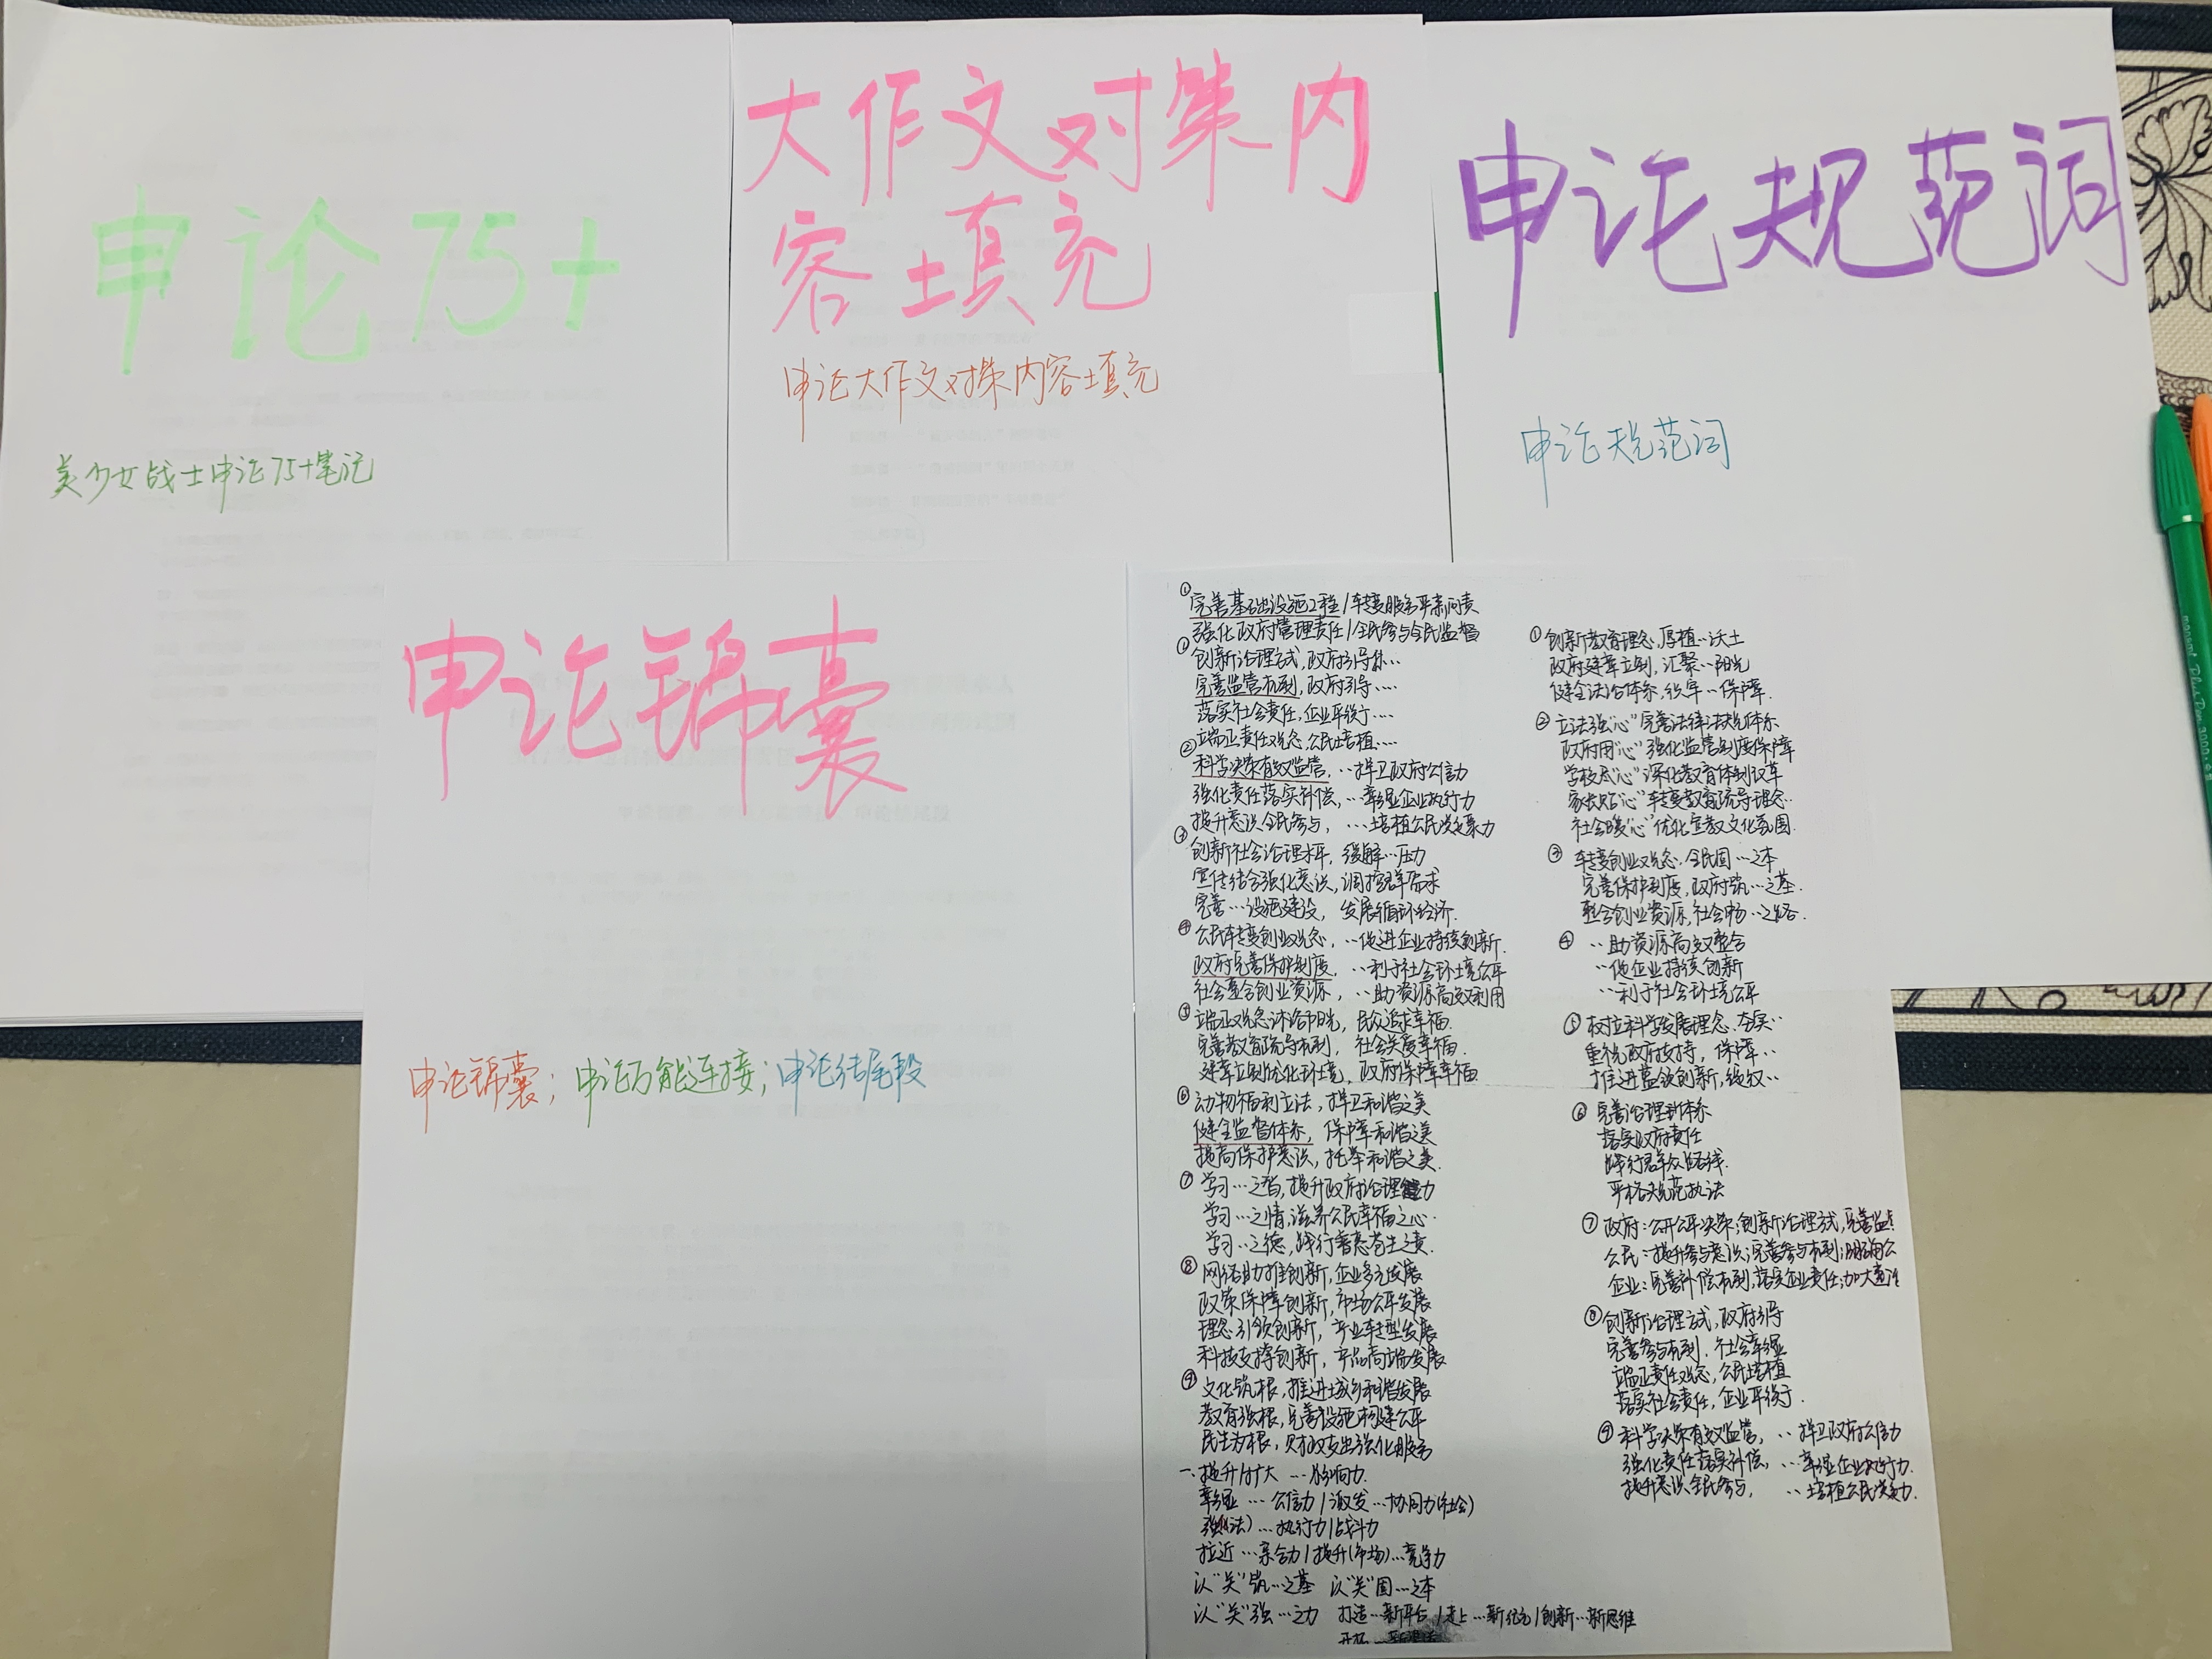 申论75+
美少女战士申论75+笔记
大作文对策内
容填充
申论大作文对策内容填充
申论规范词
申论规范词
申论锦囊
申论锦囊；申论万能连接；申论结尾段
① 完善基础设施工程/转变服务严亲问责
强化政府管理责任/全民参与全民监督
① 创新治理方式,政府引导体…
完善监管机制,政府引导…
落实社会责任,企业平衡于…
端正责任观念 公民培植…
② 科学决策有效监管,…捍卫政府公信力
强化责任落实补偿,…牵强企业执行力
提升意识全民参与,…培植公民凝聚力
创新社会治理水平,缓解…压力
宣传结合强化意识,调控群众需求
完善…设施建设,发展循环经济.
④ 公民转变创业观念,…促进企业持续创新.
政府完善保护制度,…利于社会环境公平
社会整合创业资源,…助资源高效利用
端正观念沐浴阳光,民众追求幸福.
完善教育疏导机制,社会关爱幸福.
建章立制优化环境,政府保障幸福
⑥ 动物福利立法,捍卫和谐之美
健全监督体系,保障和谐之美
提高保护意识,托举和谐之美.
⑦ 学习…之智,提升政府治理能力
学习…之情,滋养公民幸福之心.
学习…之德,践行善态苍生之责.
⑧ 网络助推创新,企业多元发展
政策保障创新,市场公平发展
理念引领创新,产业转型发展
科技支撑创新,产品高端发展
⑨ 文化筑根,推进城乡和谐发展
教育强根,完善设施构建公平
民生为根,财政支出强化服务
一.提升/扩大…影响力.
…公信力/激发…协同力(社会)
强(执法)…执行力/战斗力
拉近…亲合力/提升(市场)…竞争力
以“关”筑…之基 以“关”固…之本
以“关”强…之力 打造…新平台/走上…新征途/创新…新思维
① 创新教育理念,厚植…沃土
政府建章立制,汇聚…阳光
健全法治体系,织牢…保障.
② 立法强“心”完善法律法规体系
政府用“心”强化监管制度保障
学校尽“心”深化教育体制改革
家长贴“心”转变教育疏导理念.
社会暖“心”优化宣教文化氛围.
③ 转变创业观念,全民固…之本
完善保护制度,政府筑…之基.
整合创业资源,社会畅…之路.
④ …助资源高效整合
…促企业持续创新
…利于社会环境公平
⑤ 树立科学发展理念,夯实…
重视政府支持,保障…
推进蓝领创新,缓解…
⑥ 完善治理新体系
落实政府责任
践行群众路线.
严格规范执法
⑦ 政府:公开公平决策;创新治理方式,完善监
公民:提升参与意识;完善参与机制;明确公
企业:完善补偿机制,落实企业责任;加大
⑧ 创新治理方式,政府引导
完善参与机制,社会牵强
端正责任观念,公民培植
落实社会责任,企业平衡于.
⑨ 科学决策有效监管,…捍卫政府公信力
强化责任落实补偿,…牵强企业执行力.
提升意识全民参与,…培植公民凝聚力.